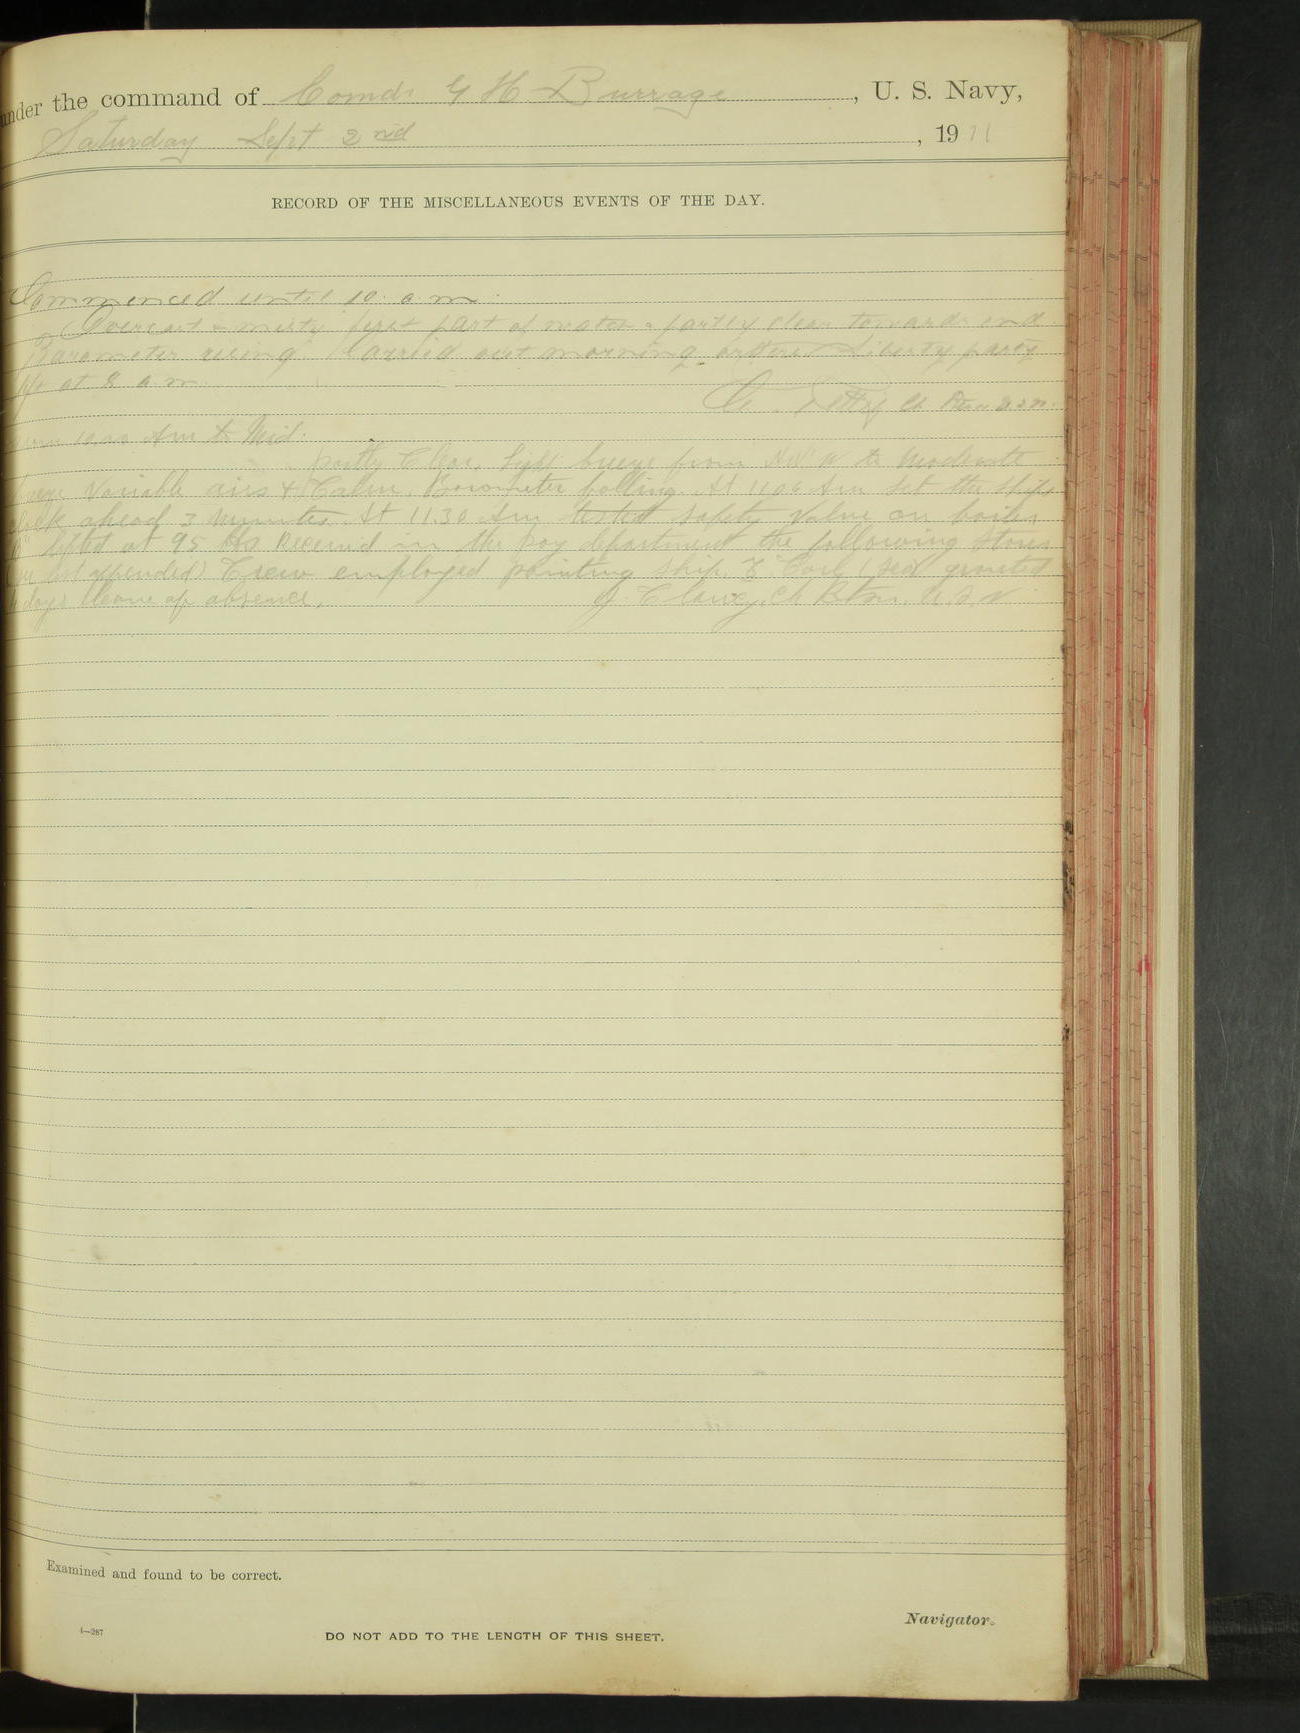 under the command of Comdr G H Burrage, U. S. Navy,
Saturday Sept 2nd, 1911
RECORD OF THE MISCELLANEOUS EVENTS OF THE DAY.
Commenced until 10. a m.
Overcast & misty first part of watch & partly clear towards end
Barometer rising. Carried out morning orders Liberty party
at 8 a.m.
Am to Mid.
Partly Clear, light breeze from to Moderate
Variable airs & Calm. Barometer falling. At 11.06 Am set the ships
clock ahead 3 Minutes. At 11.30 Am tested safety valve on boiler
lifted at 95 lbs Received in the pay department the following stores
list appended) Crew employed painting ship. granted
days leave of absence. J. Clancy, Ch Btsn. U.S.N
Examined and found to be correct.
Navigator.
4—287
DO NOT ADD TO THE LENGTH OF THIS SHEET.